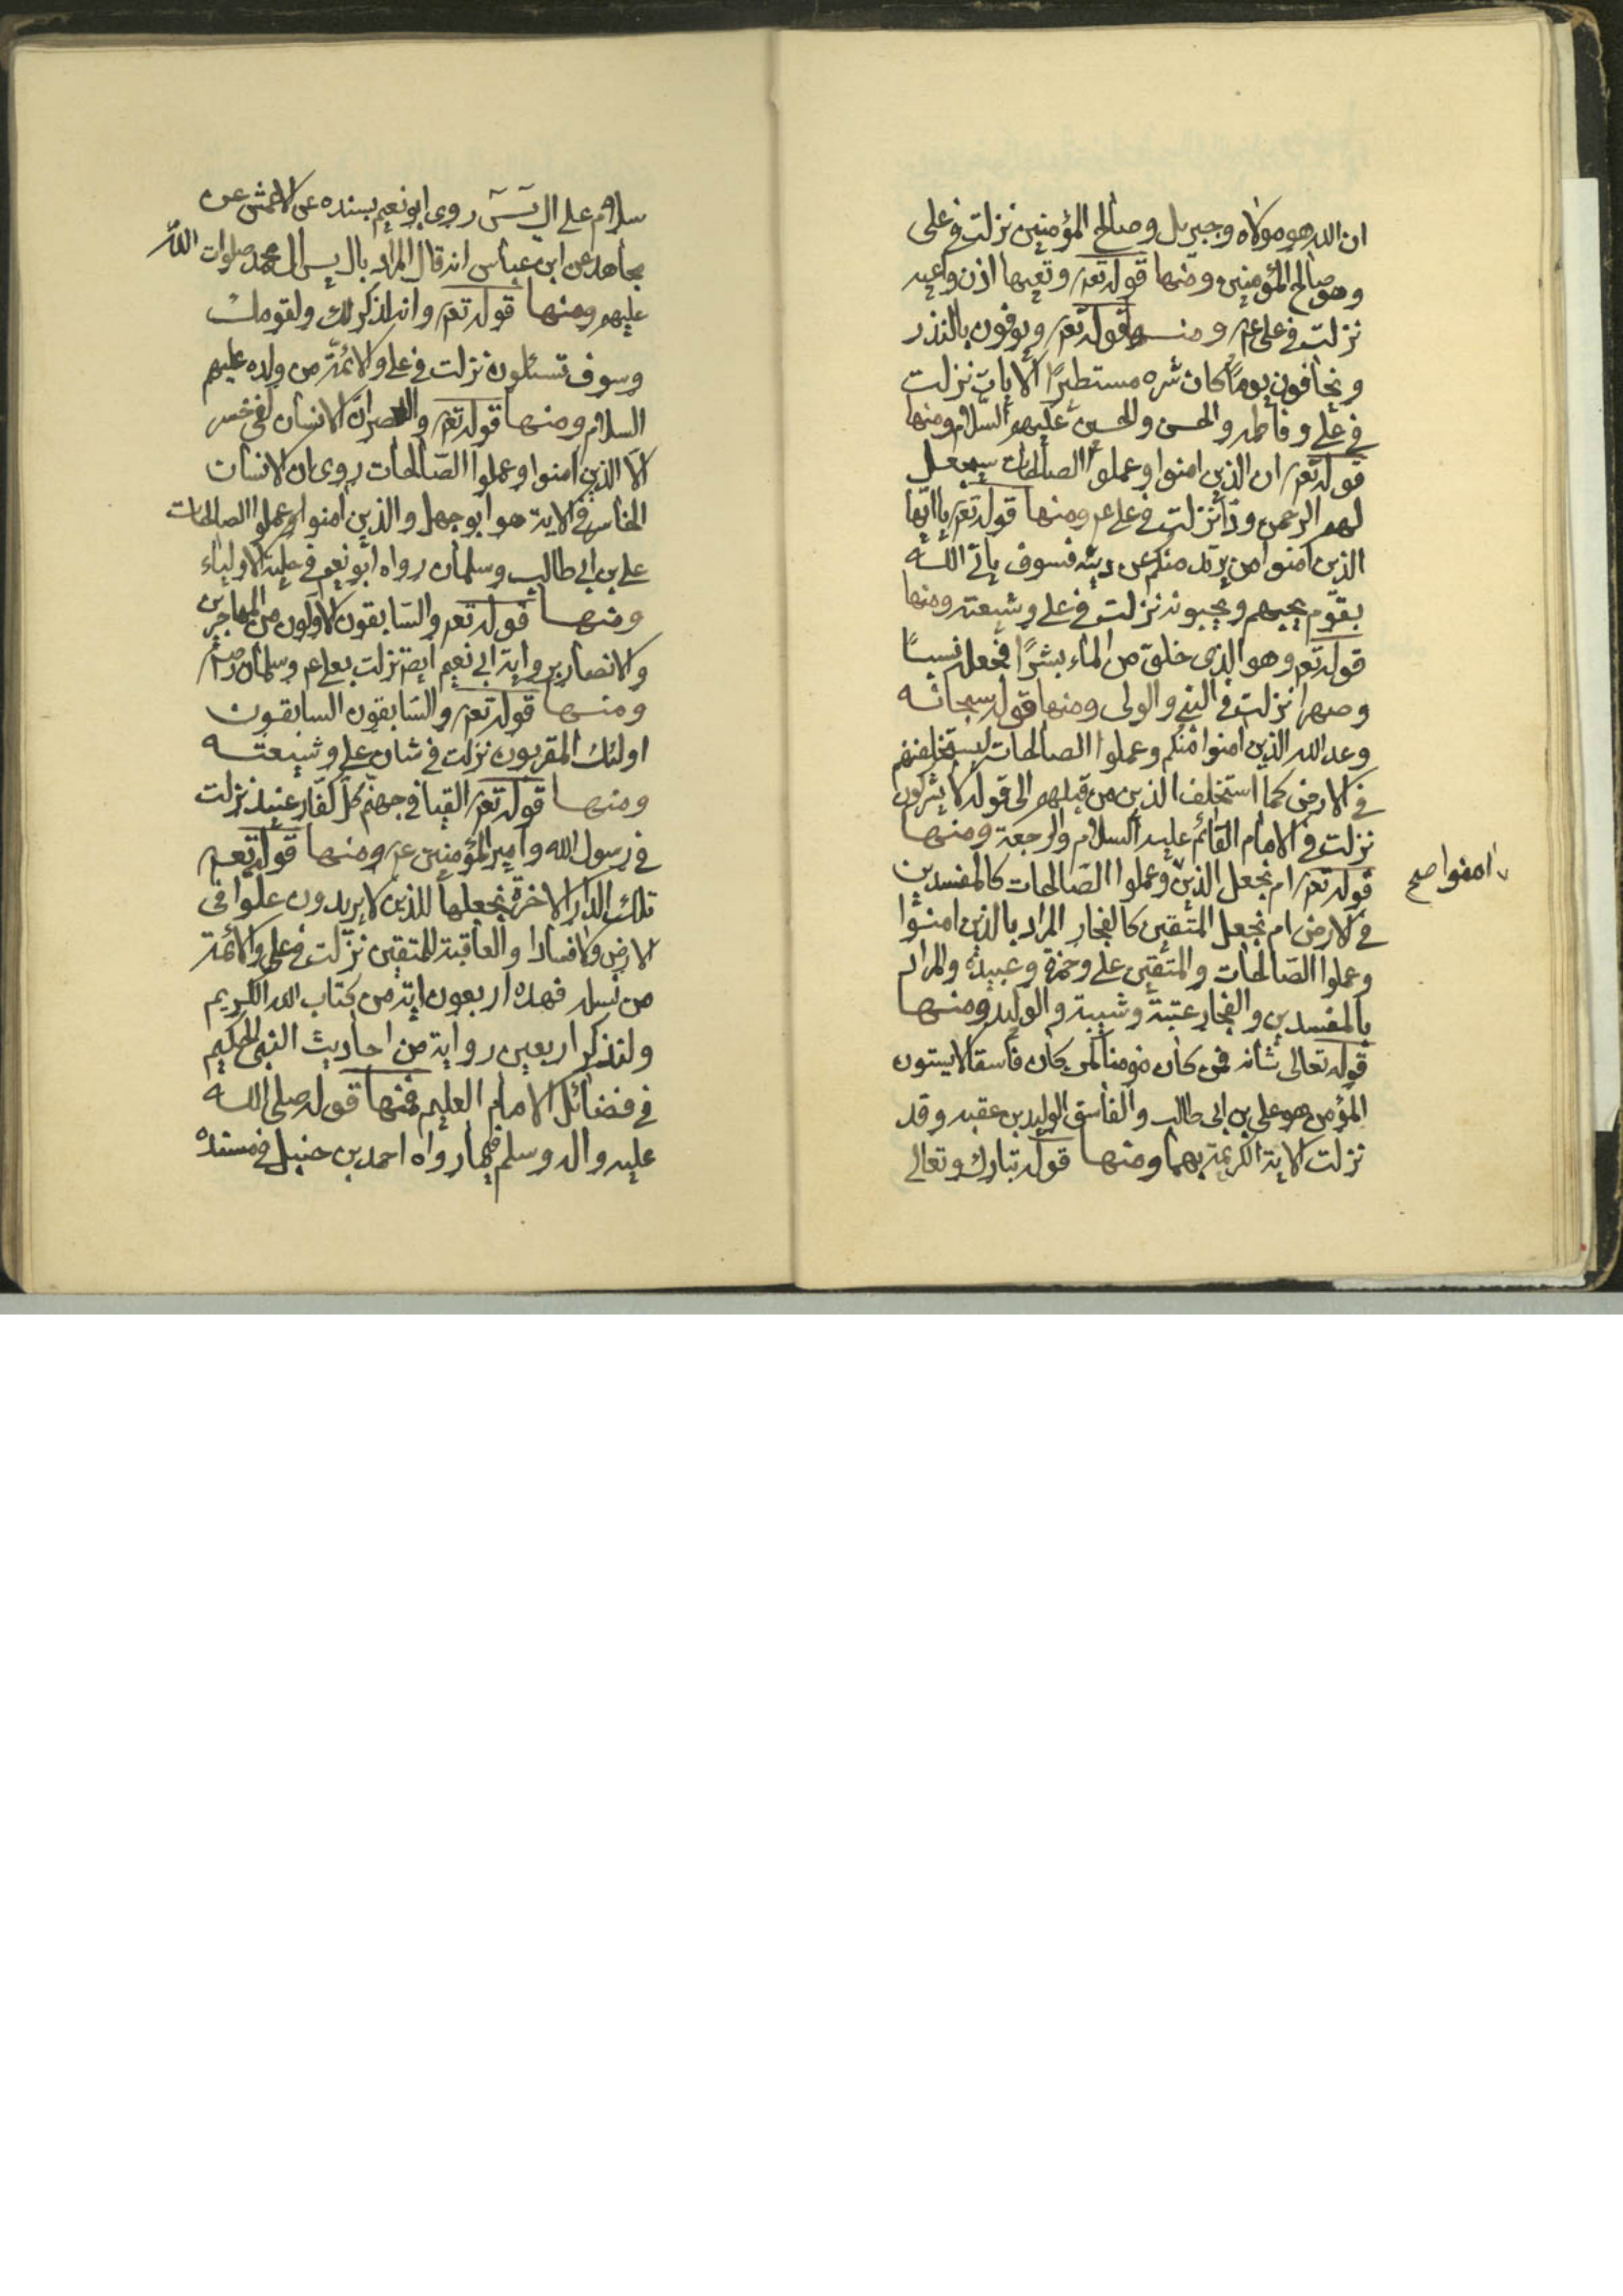 ان الله هو مولاه وجبريل وصالح المؤمنين نزلت في على
وهو صالح المؤمنين ومنها قوله تعم وتعيها اذن واعيه
نزلت في على عم ومنها قوله تعم ويوفون بالنذر
ويخافون يوماً كان شره مستطيرًا الايات نزلت
في على وفاطمه والحسن والحسين عليهم السلام ومنها
قوله تعم ان الذين امنوا وعملوا الصالحات سيجعل
لهم الرحمن ودّا نزلت في على عم ومنها قوله تعم ياايّها
الذين امنوا من يرتد منكم عن دينه فسوف ياتي الله
بقوم يحبهم ويحبونه نزلت في على وشيعته ومنها
قوله تعم وهو الذى خلق من الماء بشرًا فجعله نسبًا
وصهرا نزلت في النبي والولى ومنها قوله سبحانه
وعد الله الذين امنوا منكم وعملوا الصالحات ليستخلفنهم
في الارض كما استخلف الذين من قبلهم الى قوله لا يشركون
نزلت في الامام القائم عليه السلام والرجعة ومنها
قوله تعم ام نجعل الذين وعملوا الصالحات كالمفسدين
امنوا صح
في الارض ام نجعل المتقين كالفجار المراد بالذين امنوا
وعملوا الصالحات والمتقين على وحمزة وعبيدة والمراد
بالمفسدين والفجار عتبة وشيبة والوليد ومنها
قوله تعالى شانه فمن كان مومنا كمن كان فاسقا لا يستون
المؤمن هو على بن ابى طالب والفاسق الوليد بن عقبه وقد
نزلت الاية الكريمة بهما ومنها قوله تبارك وتعالى
سلام على ال يسٓ روى ابو نعيم بسنده عن الاعمش عن
مجاهد عن ابن عباس انه قال المراد بال يس ال محمد صلوات الله
عليهم ومنها قوله تعم وانه لذكر لك ولقومك
وسوف تسئلون نزلت في على والائمة من ولده عليهم
السلام ومنها قوله تعم والعصر ان الانسان لفي خسر
الا الذين امنوا وعملوا الصالحات روى ان الانسان
الخاسر في الاية هو ابو جهل والذين امنوا وعملوا الصالحات
على بن ابى طالب وسلمان رواه ابو نعيم في حلية الاولياء
ومنها قوله تعم والسابقون الاولون من المهاجرين
والانصار برواية ابى نعيم ايضا نزلت بعلى عم وسلمان رضه
ومنها قوله تعم والسابقون السابقون
اولئك المقربون نزلت في شان على وشيعته
ومنها قوله تعم القيا في جهنم كل كفار عنيد نزلت
في رسول الله وامير المؤمنين عم ومنها قوله تعم
تلك الدار الاخرة نجعلها للذين لا يريدون علوا في
الارض ولا فسادا والعاقبة للمتقين نزلت في على والائمة
من نسله فهذه اربعون اية من كتاب الله الكريم
ولنذكر اربعين رواية من احاديث النبى الحكيم
في فضائل الامام العليم فمنها قوله صلى الله
عليه واله وسلم فيما رواه احمد بن حنبل في مسنده